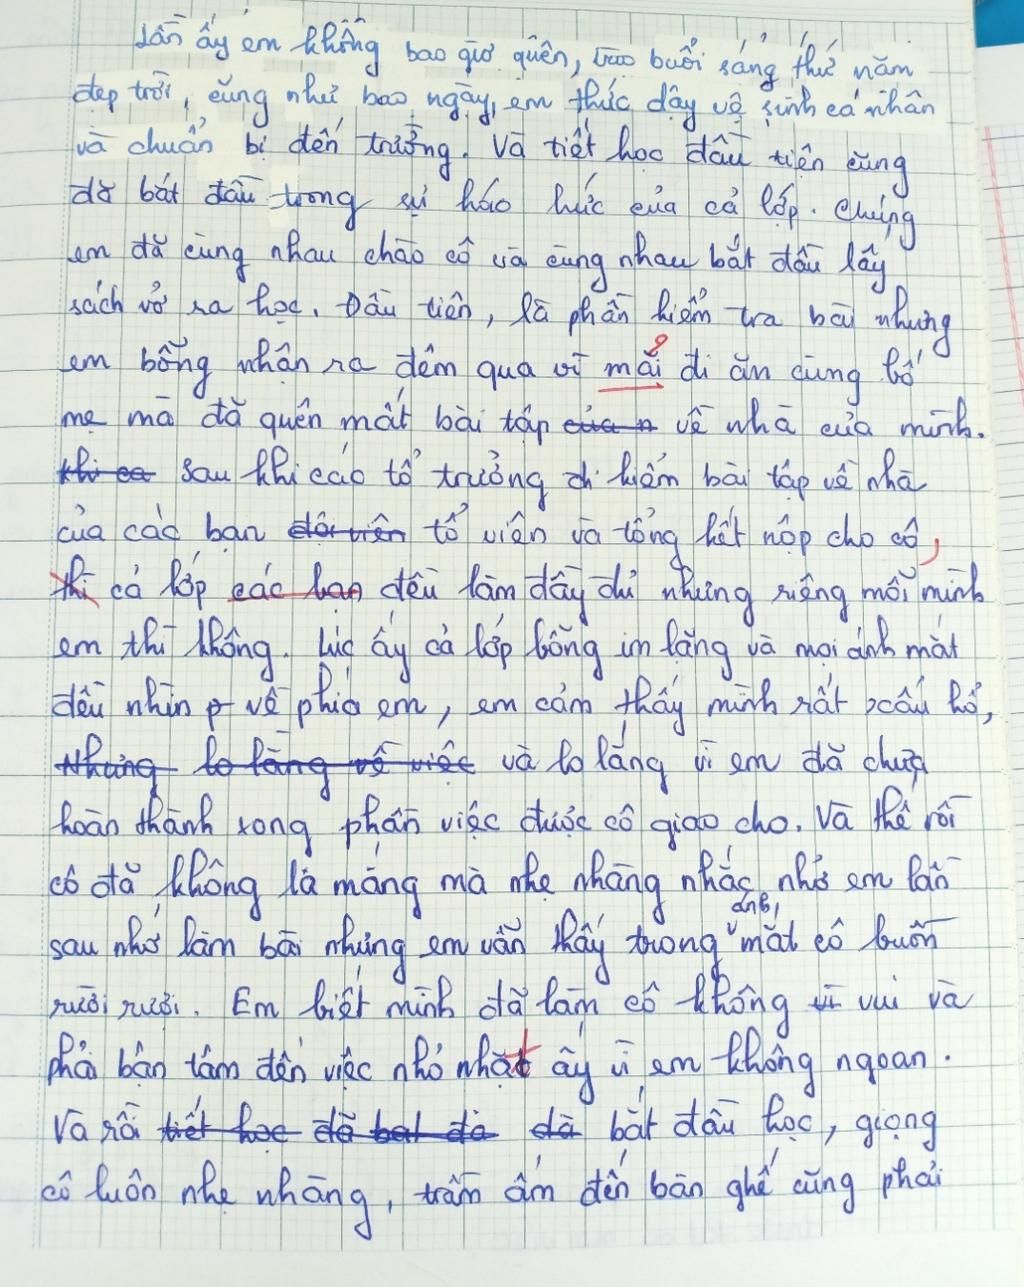 Lần ấy em không bao giờ quên, vào buổi sáng thứ năm
đẹp trời, cũng như bao ngày, em thức dậy vệ sinh cá nhân
và chuẩn bị đến trường. Và tiết học đầu tiên cũng
đã bắt đầu trong sự háo hức của cả lớp. Chúng
em đã cùng nhau chào cô và cùng nhau bắt đầu lấy
sách vở ra học. Đầu tiên, là phần kiểm tra bài nhưng
em bỗng nhận ra đêm qua vì mải đi ăn cùng bố
mẹ mà đã quên mất bài tập của n về nhà của mình.
khi ca sau khi các tổ trưởng đi kiểm bài tập về nhà
của các bạn đội viên tổ viên và tổng kết nộp cho cô,
thì cả lớp các bạn đều làm đầy đủ nhưng riêng mỗi mình
em thì không. Lúc ấy cả lớp bỗng im lặng và mọi ánh mắt
đều nhìn p về phía em, em cảm thấy mình rất xấu hổ,
Nhưng lo lắng về việc và lo lắng vì em đã chưa
hoàn thành xong phần việc được cô giao cho. Và thế rồi
cô đã không la mắng mà nhẹ nhàng nhắc nhở em lần
sau nhớ làm bài nhưng em vẫn thấy trong ánh mắt cô buồn
rười rượi. Em biết mình đã làm cô không vì vui và
phải bận tâm đến việc nhỏ nhặt ấy vì em không ngoan.
Và rồi tiết học đã bat đà đã bắt đầu học, giọng
cô luôn nhẹ nhàng, trầm ấm đến bàn ghế cũng phải